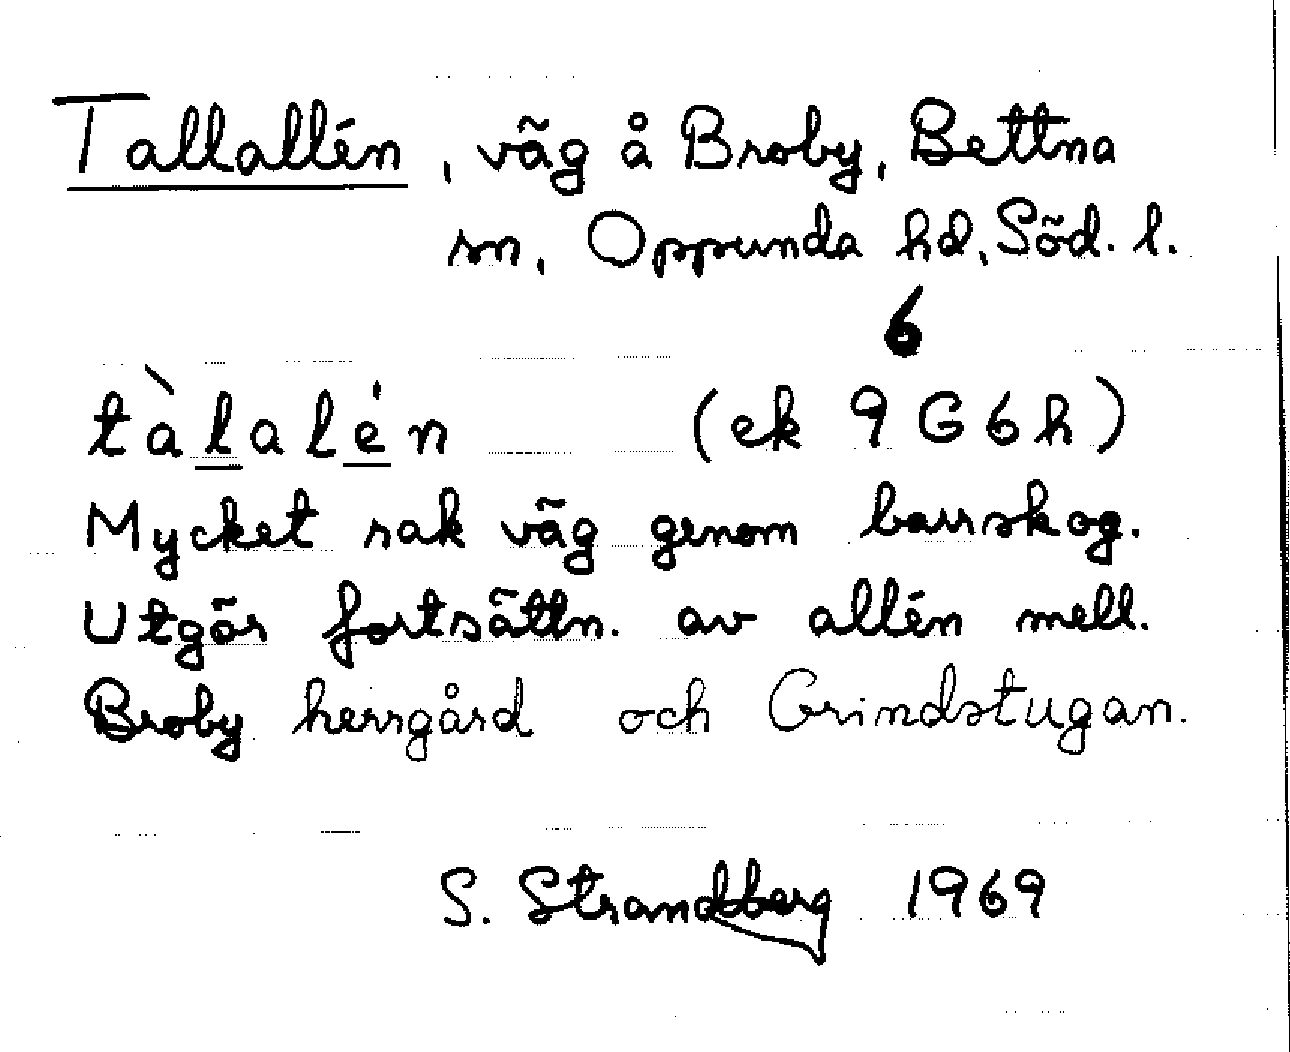 Tallallén, väg å Broby, Bettna
sn, Oppunda hd, Söd. l.
6
tàlalén (ek 9G6h)
Mycket rak väg genom barrskog.
Utgör fortsättn. av allén mell.
Broby herrgård och Grindstugan.
S. Strandberg 1969